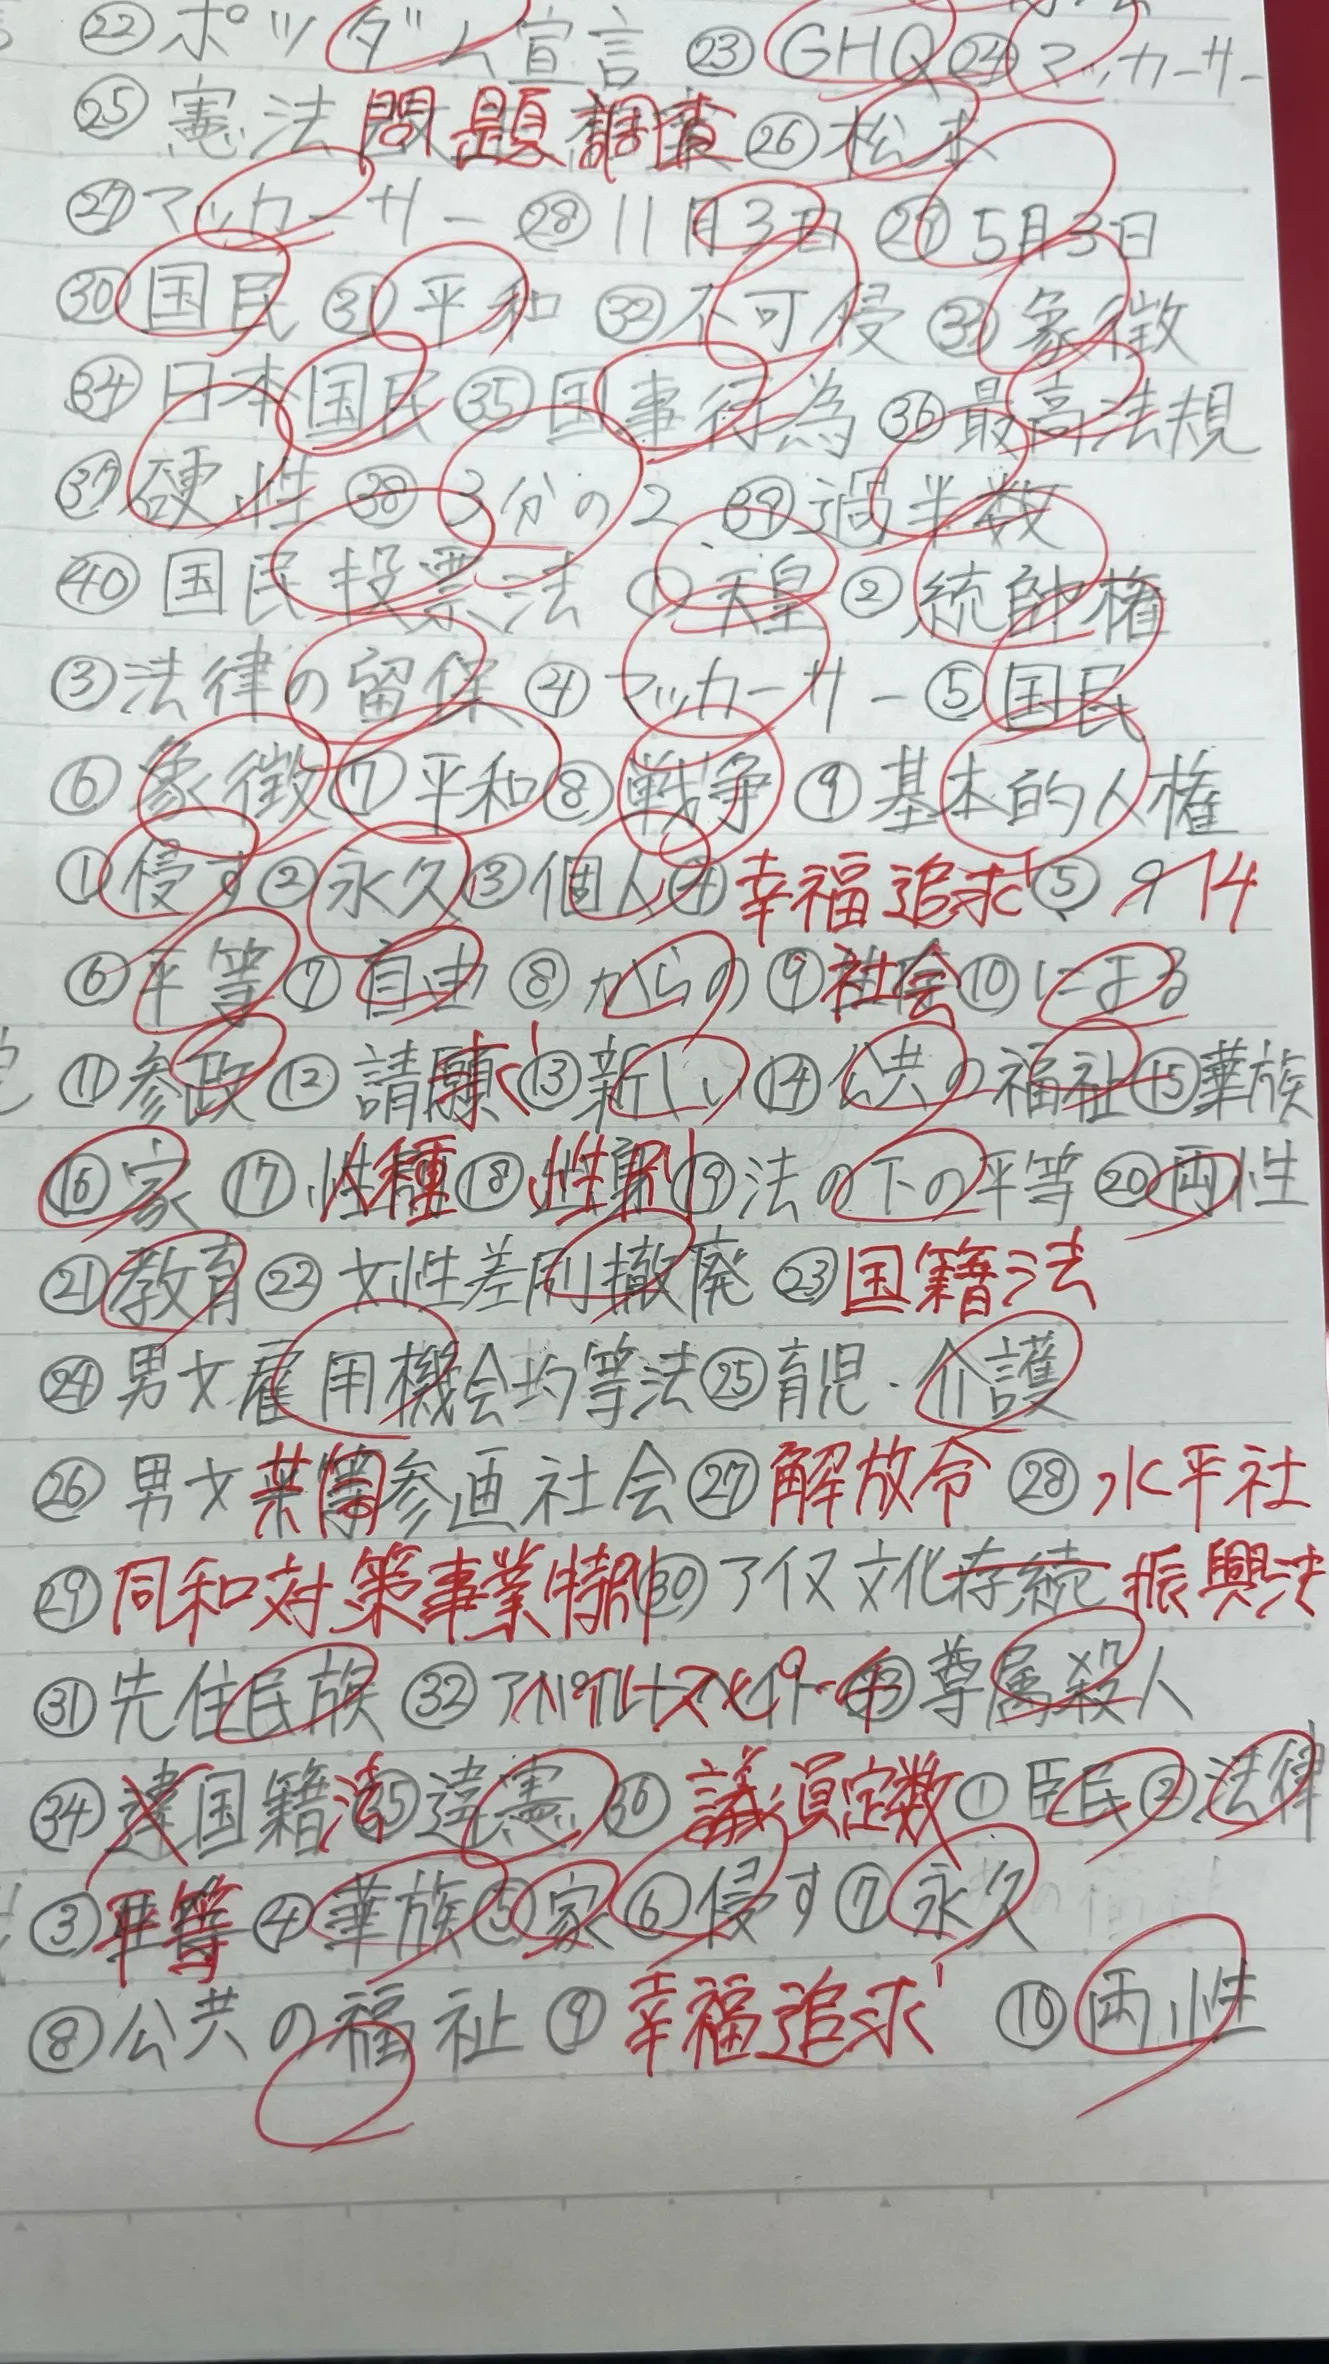 ㉒ポツダム宣言 ㉓GHQ ㉔マッカーサー
㉕憲法問題調査 ㉖松本
㉗マッカーサー ㉘11月3日 ㉙5月3日
㉚国民 ㉛平和 ㉜不可侵 ㉝象徴
㉞日本国民 ㉟国事行為 ㊱最高法規
㊲硬性 ㊳3分の2 ㊴過半数
㊵国民投票法 ①天皇 ②統帥権
③法律の留保 ④マッカーサー ⑤国民
⑥象徴 ⑦平和 ⑧戦争 ⑨基本的人権
①侵す ②永久 ③個人 ④幸福追求 ⑤ 14
⑥平等 ⑦自由 ⑧からの ⑨社会 ⑩による
⑪参政 ⑫請願 ⑬新しい ⑭公共の福祉 ⑮華族
⑯家 ⑰人種 ⑱性別 ⑲法の下の平等 ⑳両性
㉑教育 ㉒女性差別撤廃 ㉓国籍法
㉔男女雇用機会均等法 ㉕育児・介護
㉖男女共同参画社会 ㉗解放令 ㉘水平社
㉙同和対策事業特別 ㉚アイヌ文化存続 振興法
㉛先住民族 ㉜ ㉝尊属殺人
㉞違国籍法 ㉟違憲 ㊱議員定数 ①臣民 ②法律
③平等 ④華族 ⑤家 ⑥侵す ⑦永久
⑧公共の福祉 ⑨幸福追求 ⑩両性